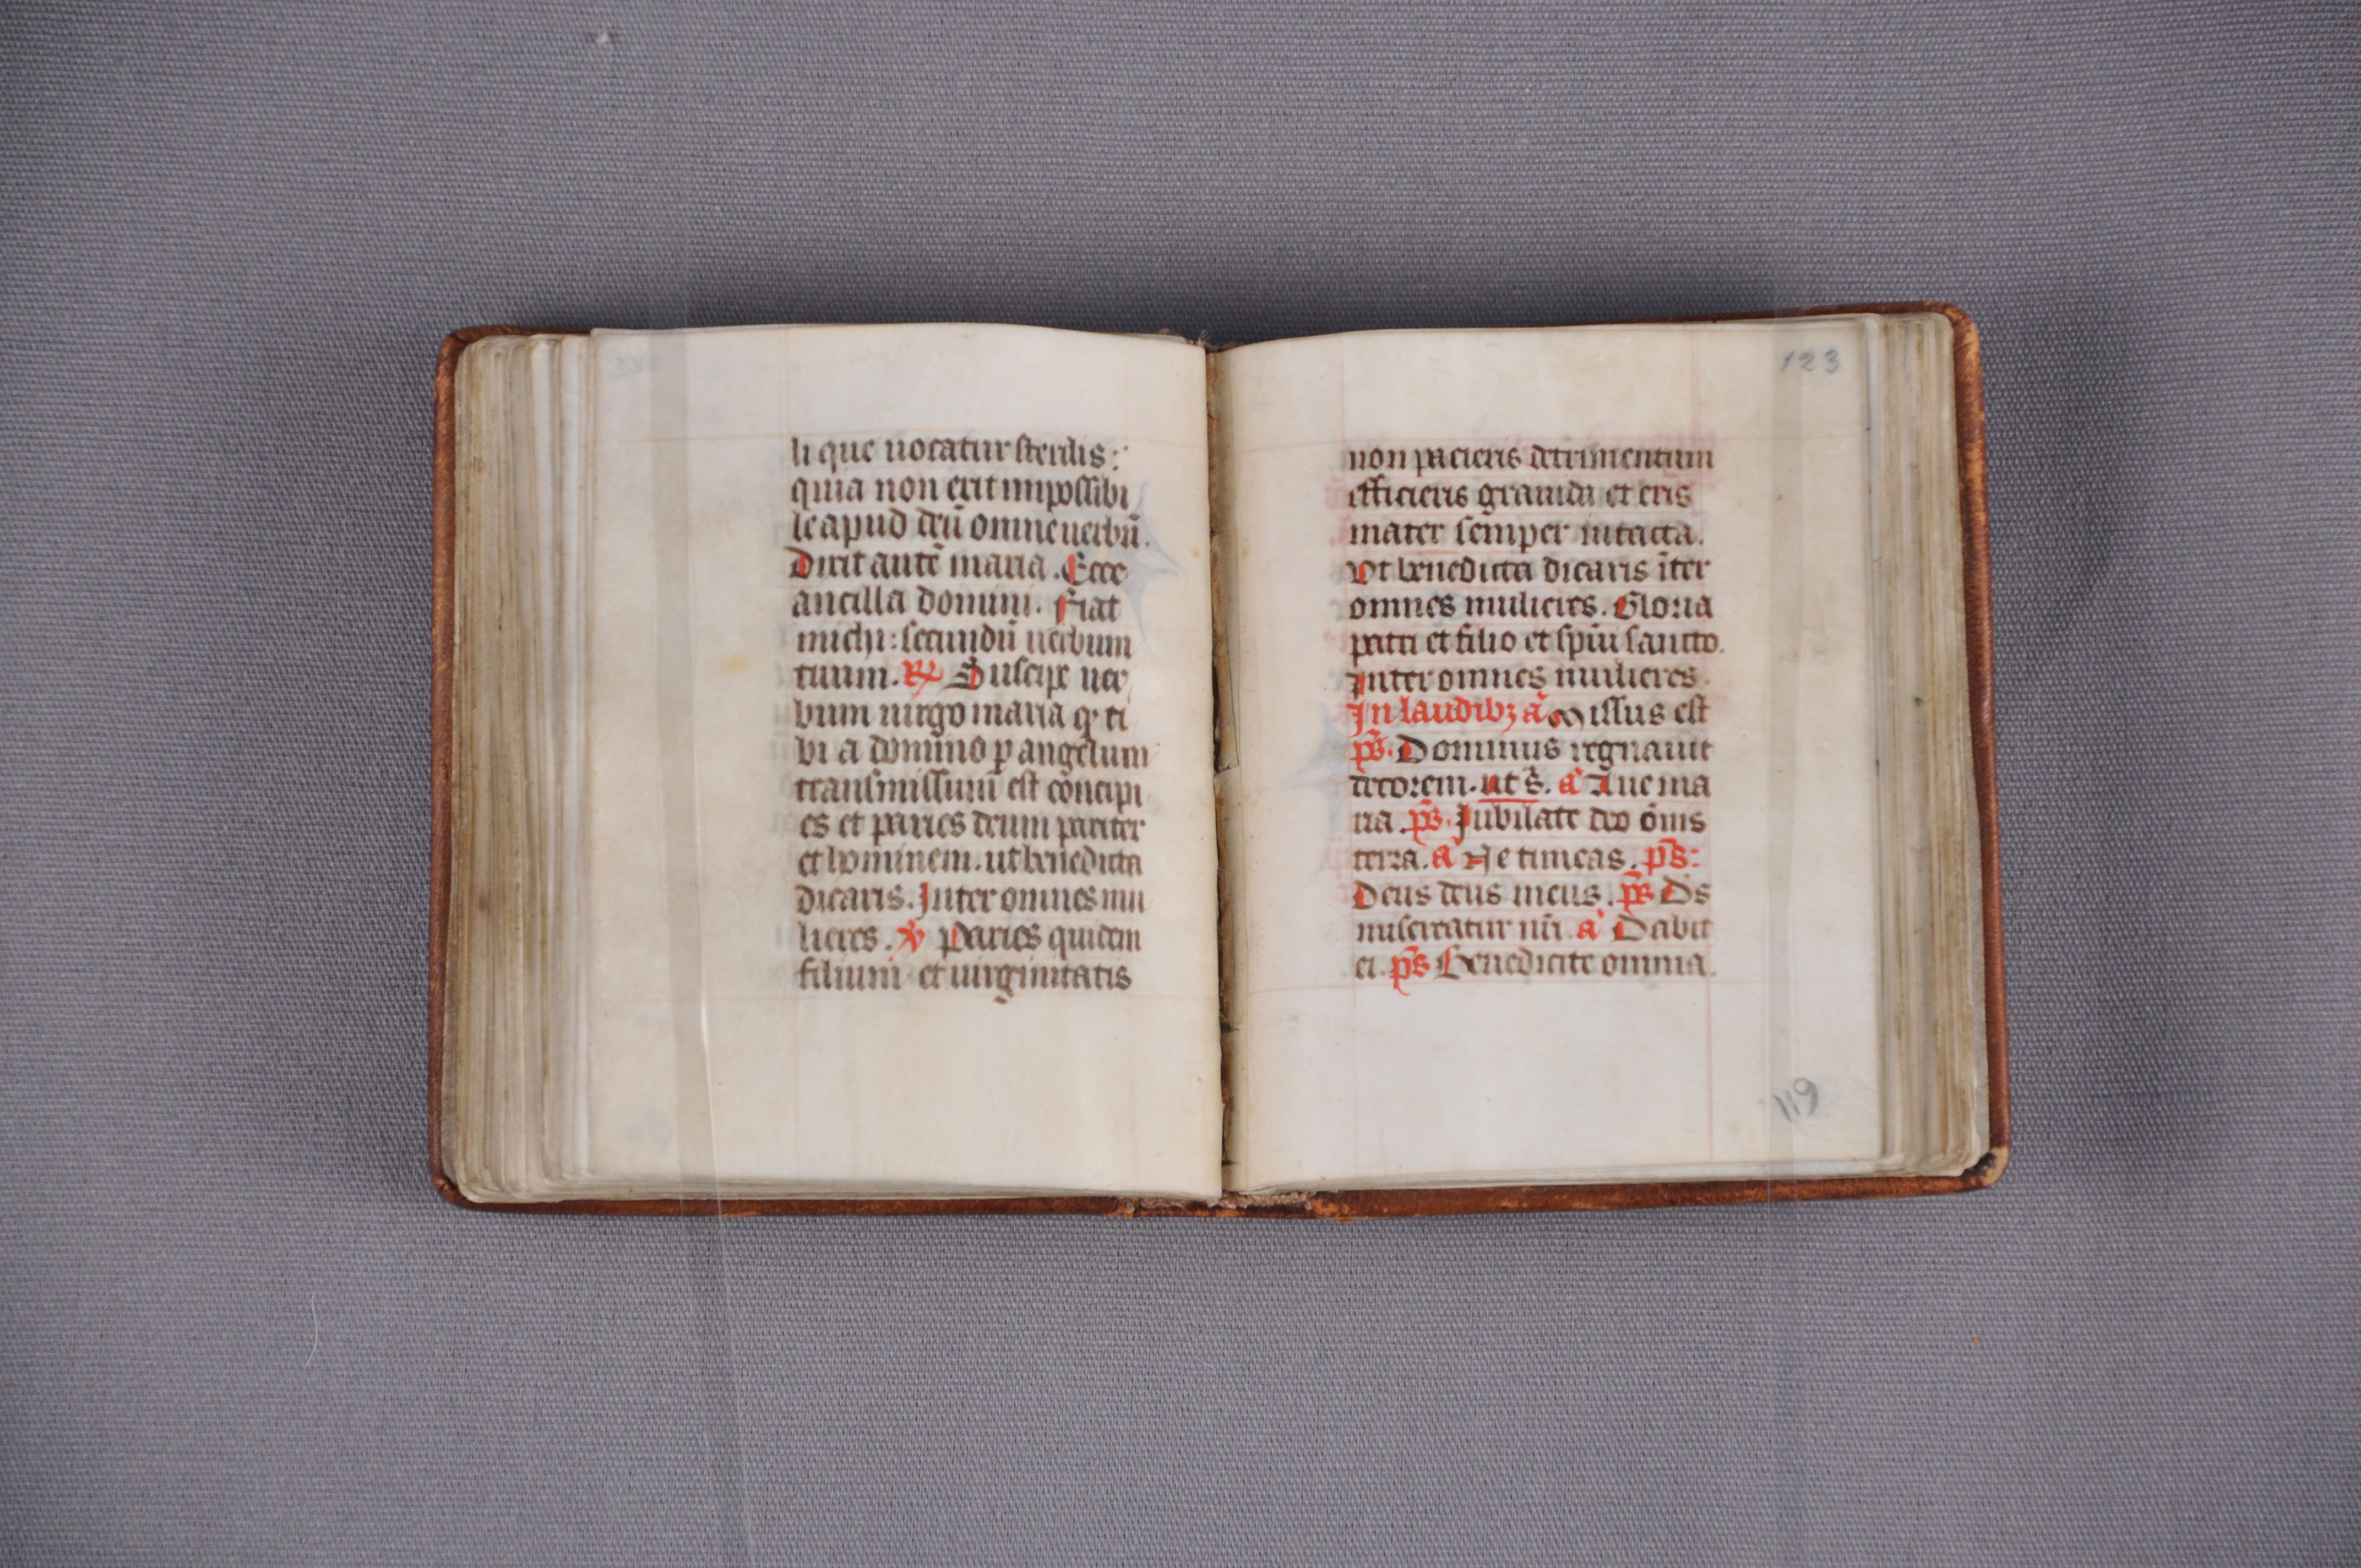 li que uocatur sterilis:
quia non erit impossibi
le apud deū omne uerbū.
Dixit autē maria. Ecce
ancilla domini. Fiat
michi: secundū uerbum
tuum. R Suscipe uer
bum uirgo maria q ti
bi a domino p angelum
transmissum est cōcipi
es et paries deum pariter
et hominem. ut benedicta
dicaris. Inter omnes mu
lieres. V Paries quidem
filium et uirginitatis
123
non pacieris detrimentum
efficieris grauida et eris
mater semper intacta.
Ut benedicta dicaris īter
omnes mulieres. Gloria
patri et filio et spūi sancto.
Inter omnes mulieres.
In laudibꝫ a Missus est
ps. Dominus regnauit
decorem. ut s. a Aue ma
ria. ps. Iubilate deo ōnis
terra. a Ne timeas. ps:
Deus deus meus. ps Ds
misereatur nr̄i. a Dabit
ei. ps Benedicite omnia.
119